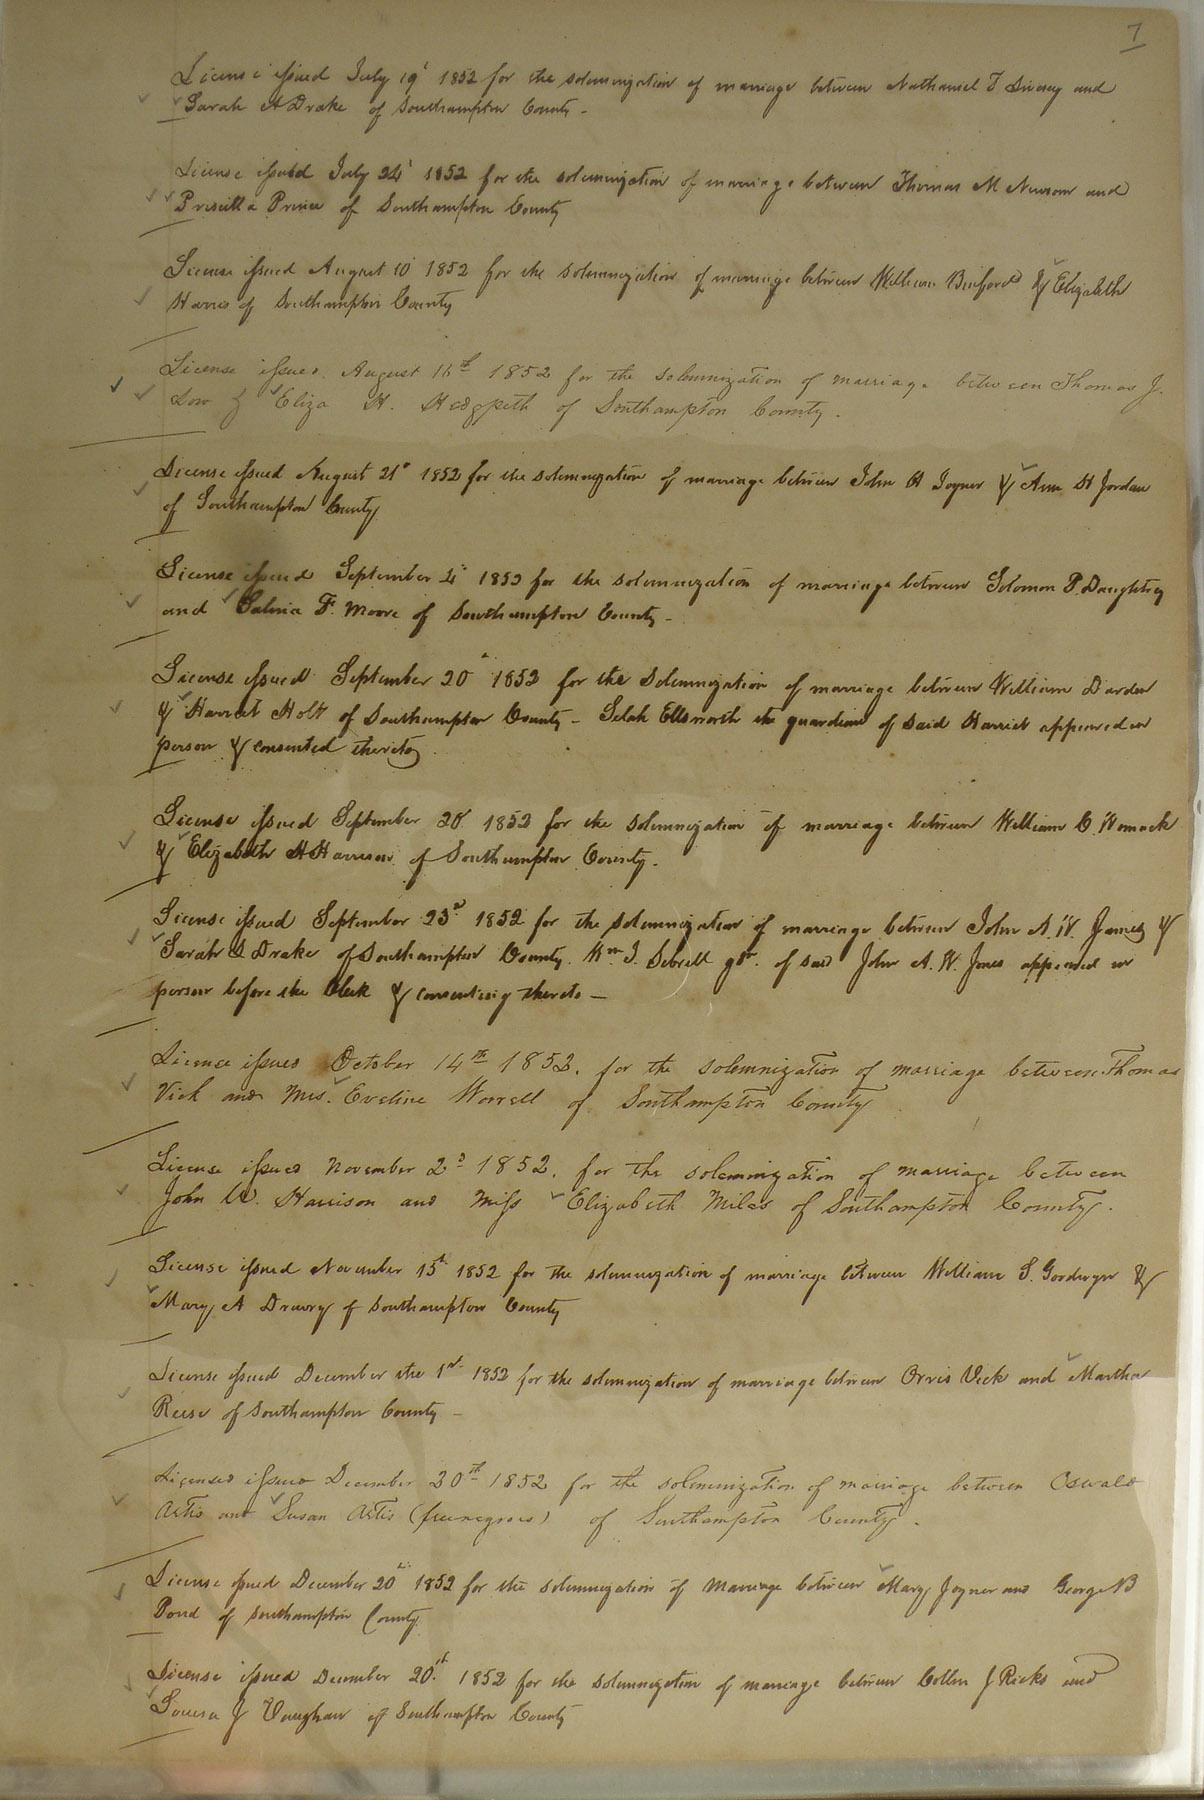 7
License issued July 19' 1852 for the solemnization of marriage between Nathaniel T and
Sarah A Drake of Southampton County -
License issued July 24' 1852 for the solemnization of marriage between Thomas M Newsom and
Priscilla Prince of Southampton County
License issued August 10' 1852 for the solemnization of marriage between William Binford & Elizabeth
Harris of Southampton County
License issued August 16th 1852 for the solemnization of marriage between Thomas J.
Low & Eliza H. Hedgpeth of Southampton County.
License issued August 21st 1852 for the solemnization of marriage between John A Joyner & Ann H Jordan
of Southampton County
License issued September 4' 1852 for the solemnization of marriage between Solomon P. Daughtry
and F. Moore of Southampton County -
License issued September 20' 1852 for the solemnization of marriage between William Darden
& Harriet Holt of Southampton County - Ellsworth the guardian of said Harriet appeared in
person & consented thereto
License issued September 20 1852 for the solemnization of marriage between William C. Womack
& Elizabeth H Harrison of Southampton County.
License issued September 23d 1852 for the solemnization of marriage between John A. W. James &
Sarah Drake of Southampton County. Wm J. Sebrell gdn. of said John A. W. Jones appeared in
person before the Clerk & consenting thereto —
License issued October 14th 1852. for the solemnization of marriage between Thomas
Vick and Mrs. Eveline Worrell of Southampton County
License issued November 2d 1852. for the solemnization of marriage between
John W. Harrison and Miss Elizabeth Miles of Southampton County.
License issued November 15th 1852 for the solemnization of marriage between William S. Goodwyn &
Mary A Drewry of Southampton County
License issued December the 1st 1852 for the solemnization of marriage between Orris Vick and Martha
Reese of Southampton County -
Licensed issued December 20th 1852 for the solemnization of marriage between Oswald
Artis and Susan Artis (free negroes) of Southampton County.
License issued December 20th 1852 for the solemnization of Marriage between Mary Joyner and George B
Pond of Southampton County
License issued December 20th. 1852 for the solemnization of marriage between Collin J Ricks and
Louisa J Vaughan of Southampton County